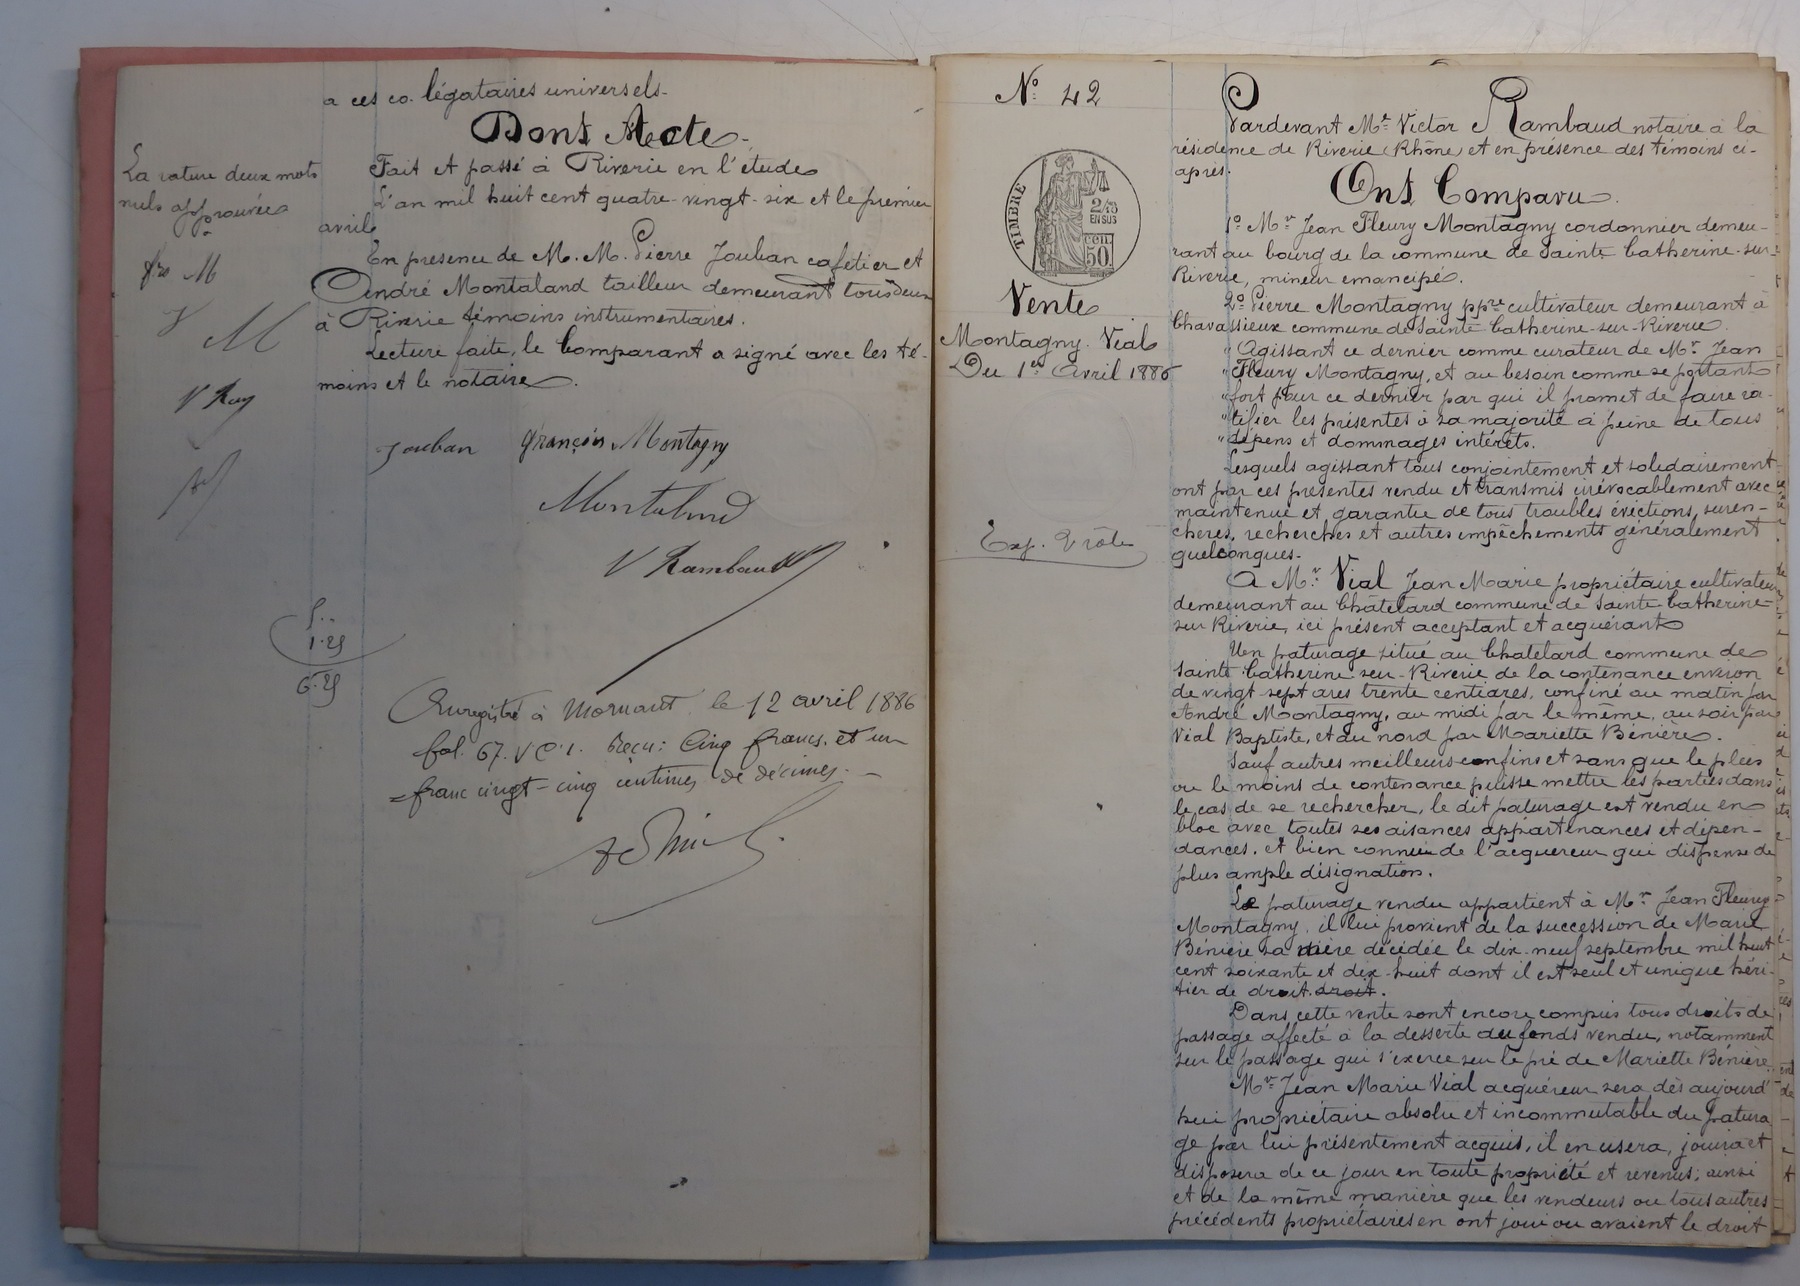 a ces co-légataires universels.
Dont Acte.
La rature deux mots
nuls approuvée
fro M
V M
V Ray
Fait et passé à Riverie en l'étude
L'an mil huit cent quatre-vingt-six et le premier
avril
En presence de M. M. Pierre Jouban cafetier et
André Montaland tailleur demeurant tous deux
à Riverie témoins instrumentaires.
Lecture faite, le Comparant a signé avec les té-
moins et le notaire.
Jouban françois Montagny
Montaland
V Rambaud
5..
1.25
6.25
Enregistré à Mornant le 12 avril 1886
fol. 67. V C. 1. Reçu: Cinq francs, et un
franc vingt-cinq centimes de décimes.
N° 42
TIMBRE
2/10
EN SUS
CEN.
50.
Vente
Montagny. Vial
Du 1er Avril 1886
Exp. 2 rôles
Pardevant Me Victor Rambaud notaire à la
résidence de Riverie (Rhône) et en présence des témoins ci-
après.
Ont Comparu.
1° Mr Jean Fleury Montagny cordonnier demeu-
rant au bourg de la commune de Sainte Catherine-sur-
Riverie, mineur emancipé.
2° Pierre Montagny ppre cultivateur demeurant à
Chavassieux commune de Sainte Catherine-sur-Riverie.
"Agissant ce dernier comme curateur de Mr Jean
"Fleury Montagny, et au besoin comme se portant
"fort pour ce dernier par qui il promet de faire ra-
"tifier les présentes à sa majorité à peine de tous
"dépens et dommages intérêts.
Lesquels agissant tous conjointement et solidairement
ont par ces présentes vendu et transmis irrévocablement avec
maintenue et garantie de tous troubles évictions, suren-
chères, recherches et autres empêchements généralement
quelconques.
A Mr Vial Jean Marie propriétaire cultivateur
demeurant au Châtelard commune de Sainte Catherine-
sur Riverie, ici présent acceptant et acquérant
Un paturage situé au Chatelard commune de
Sainte Catherine-sur-Riverie de la contenance environ
de vingt-sept ares trente centiares, confiné au matin par
André Montagny, au midi par le même, au soir par
Vial Baptiste, et au nord par Mariette Bénière.
Sauf autres meilleurs confins et sans que le plus
ou le moins de contenance puisse mettre les parties dans
le cas de se rechercher, le dit paturage est vendu en
bloc avec toutes ses aisances appartenances et dépen-
dances, et bien connu de l'acquereur qui dispense de
plus ample désignation.
Le paturage vendu appartient à Mr Jean Fleury
Montagny, il lui provient de la succession de Marie
Bénière sa mère décédée le dix-neuf septembre mil huit
cent soixante et dix-huit dont il est seul et unique héri-
tier de droit droit.
Dans cette vente sont encore compris tous droits de
passage affecté à la desserte du fonds vendu, notamment
sur le passage qui s'exerce sur le pré de Mariette Bénière.
Mr Jean Marie Vial acquéreur sera dès aujourd'
hui propriétaire absolu et incommutable du patura
ge par lui présentement acquis, il en usera, jouira et
disposera de ce jour en toute propriété et revenus; ainsi
et de la même manière que les vendeurs ou tous autres
précédents propriétaires en ont joui ou avaient le droit